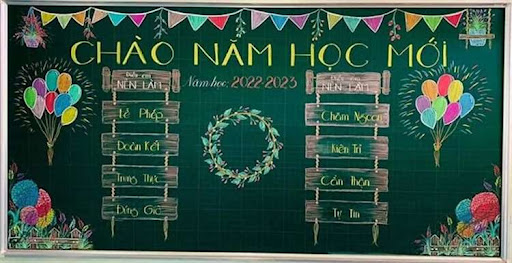 CHÀO NĂM HỌC MỚI
Năm học: 2022-2023
Điều em
NÊN LÀM
Lễ Phép
Đoàn Kết
Trung Thực
Đúng Giờ
Điều em
NÊN LÀM
Chăm Ngoan
Kiên Trì
Cẩn Thận
Tự Tin